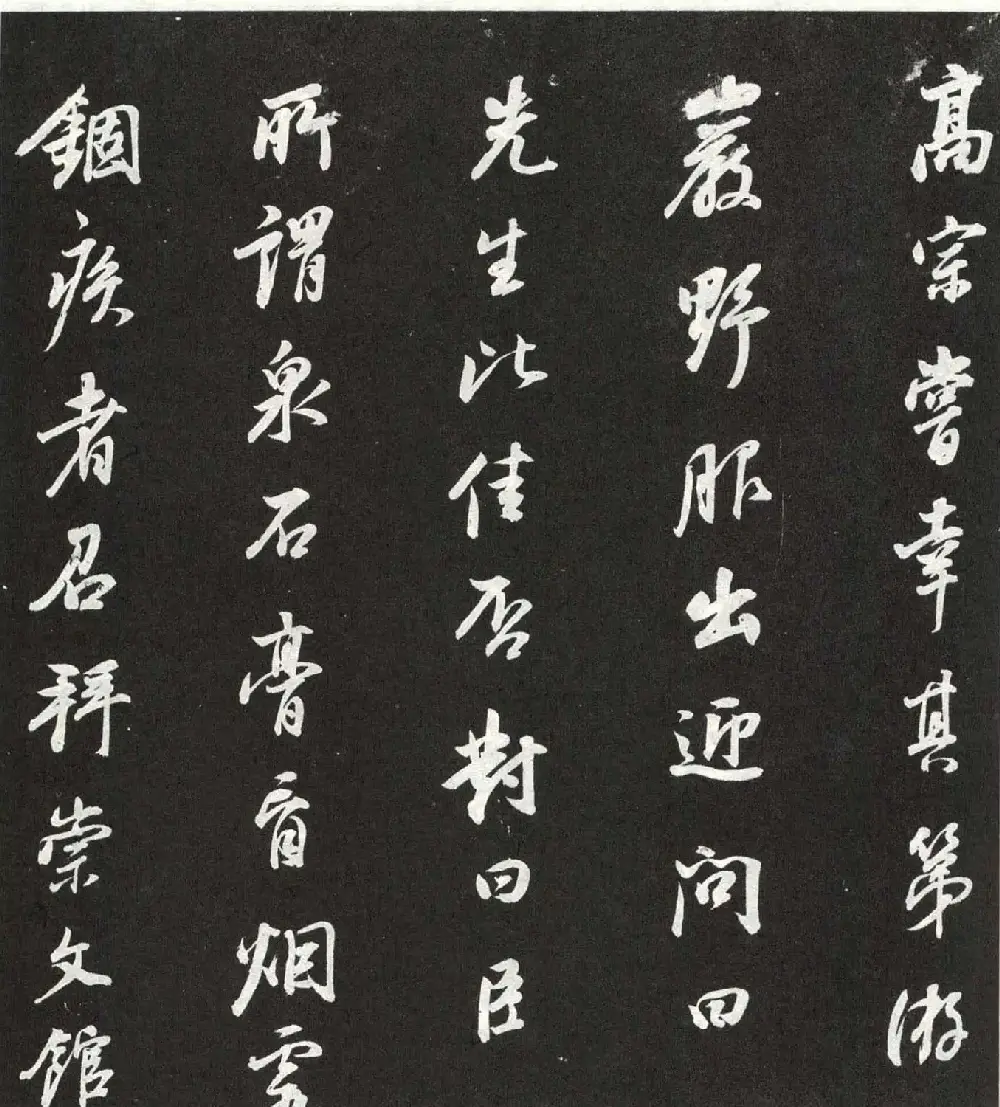 高宗嘗幸其第游
巖野服出迎問曰
先生比佳否對曰臣
所謂泉石膏肓烟霞
錮疾者召拜崇文館